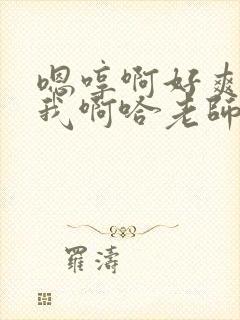 嗯哼啊好爽
我啊哈老師
羅濤